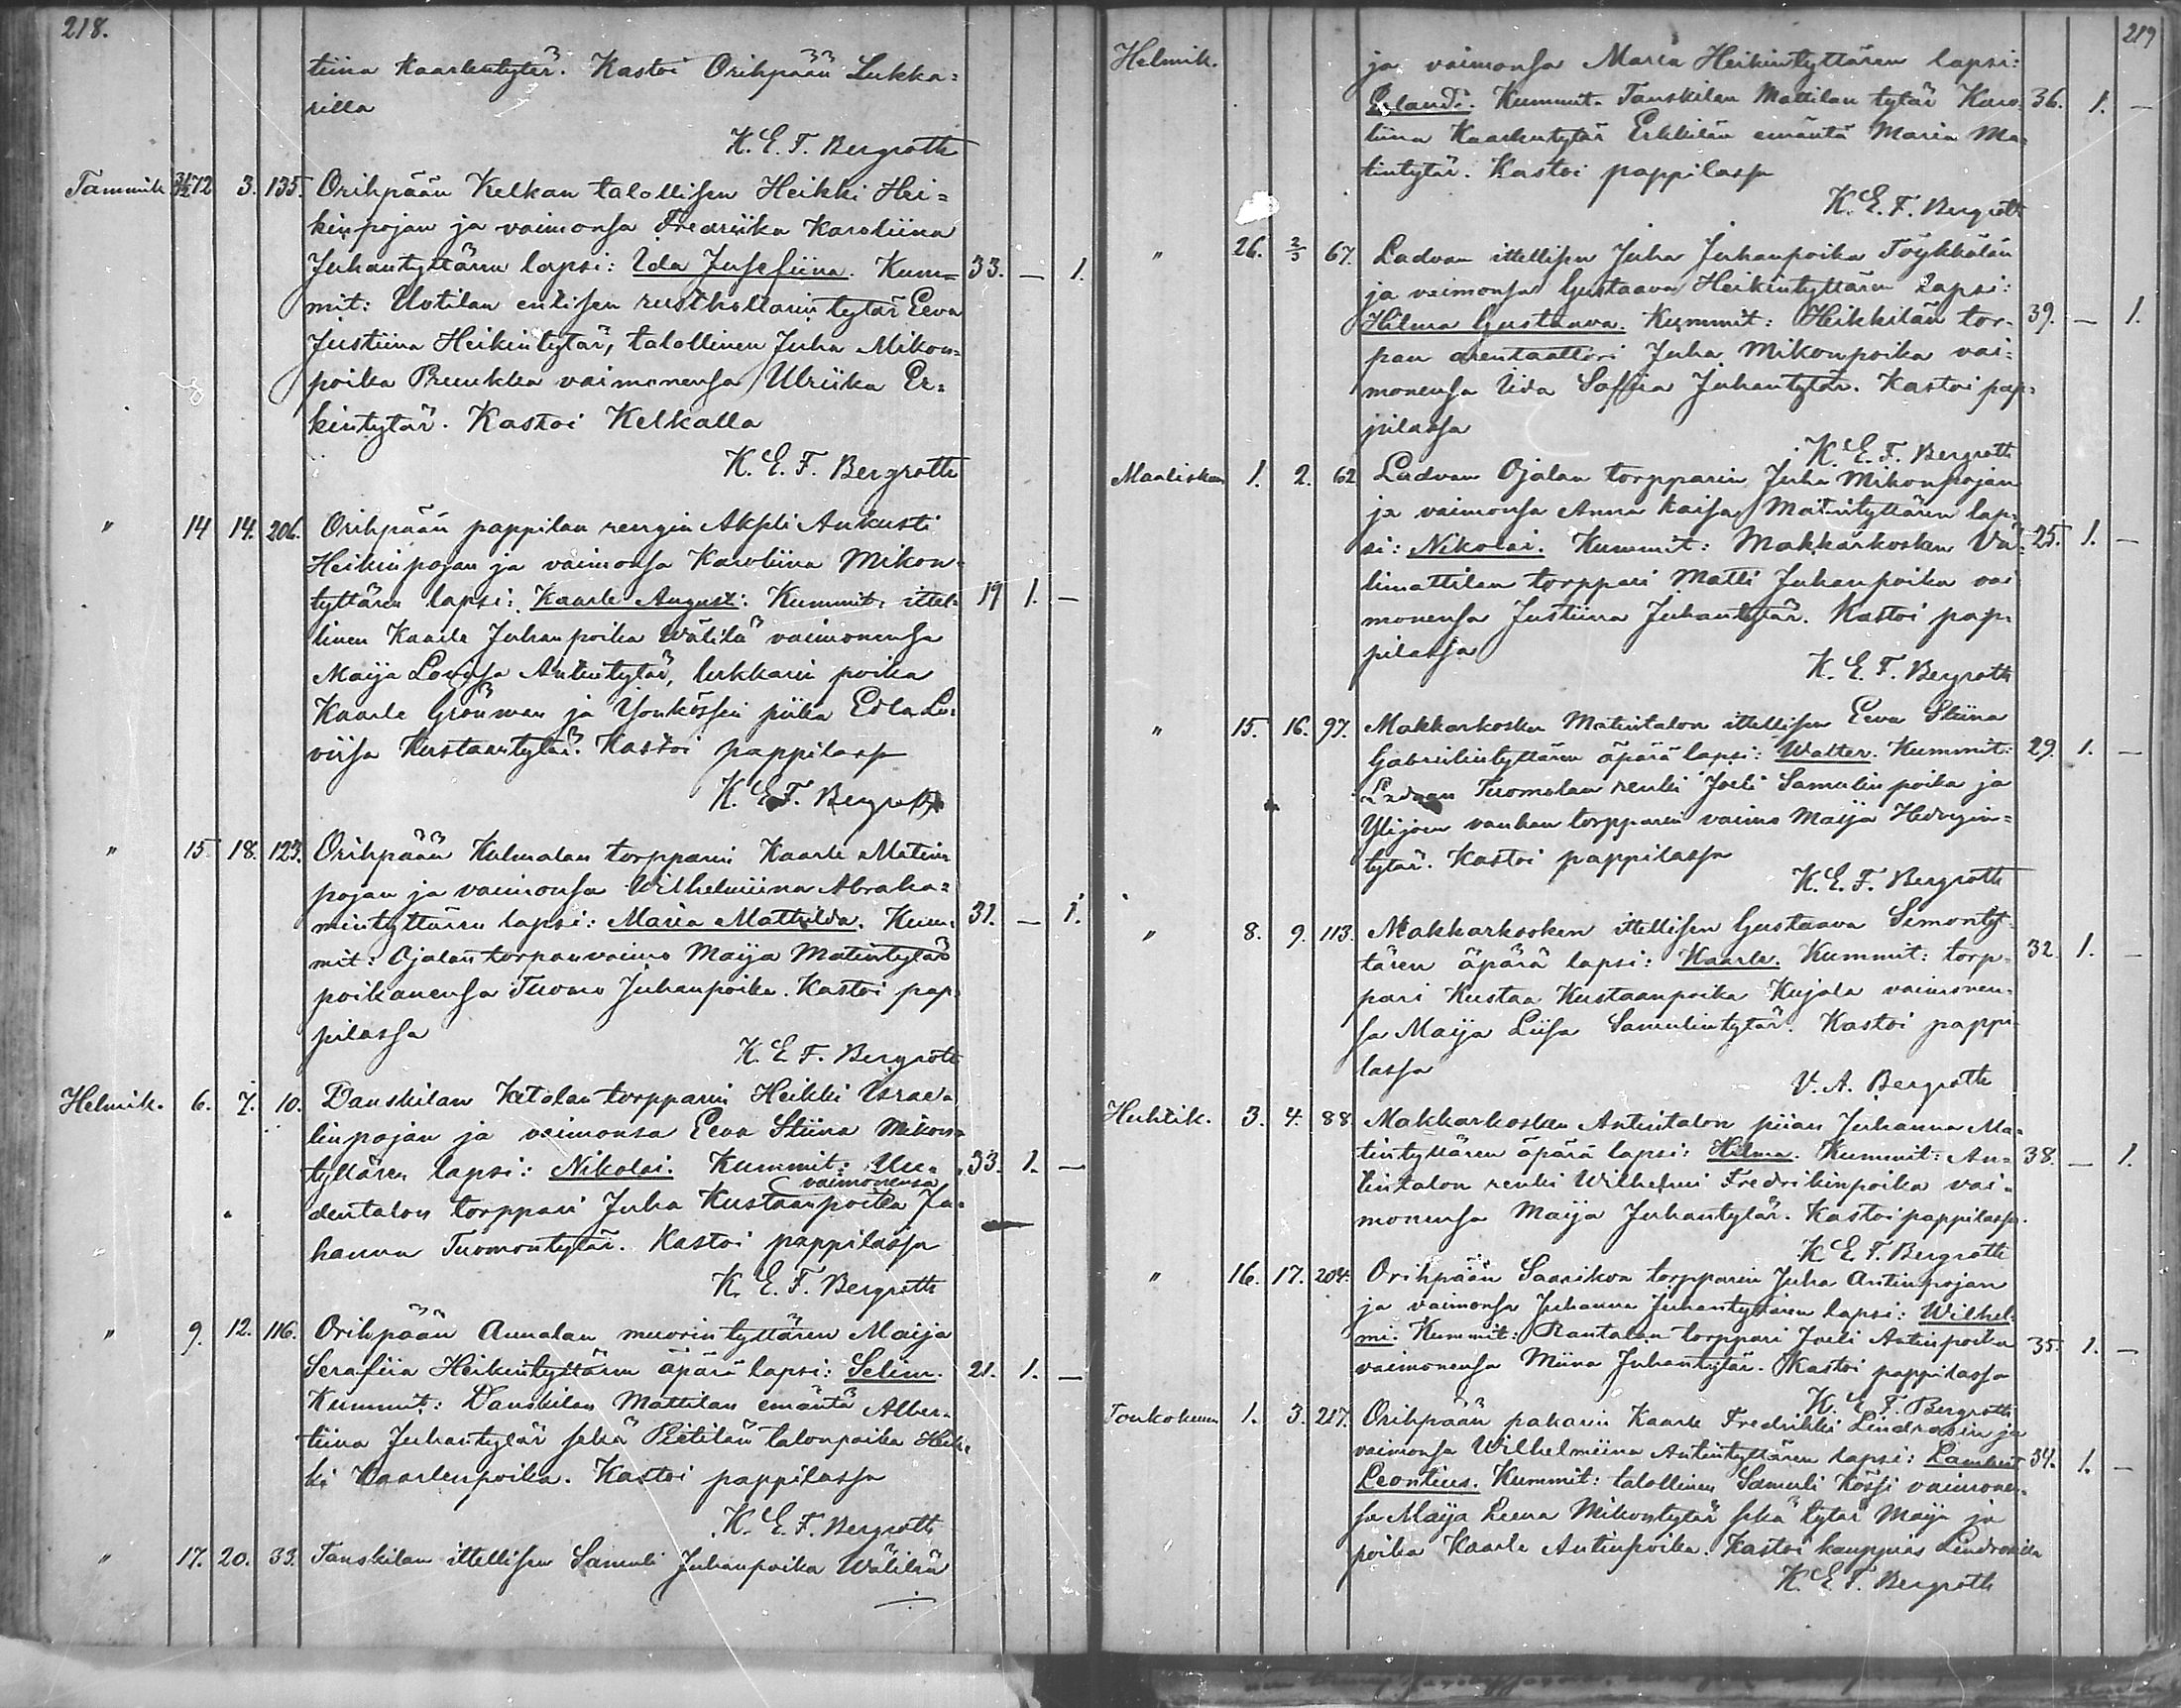 218.
tiina Kaarlentytär. Kastoi Orihpään Lukka=
rilla
K. E. F. Bergroth
Tammik 72 3. 135. Orihpään Kelkan talollisen Heikki Hei=
kinpojan ja vaimonsa Fredriika Karoliina
Juhantyttären lapsi: Ida Jusefiina. Kum= 33. — 1.
mit: Uotilan entisen rusthollarin tytär Eeva
Justiina Heikintytär, talollinen Juha Mikon=
poika Prunkka vaimonensa Ulriika Er=
kintytär. Kastoi Kelkalla
K. E. F. Bergroth
" 14 14. 206. Orihpään pappilan rengin Akseli Aukusti
Heikinpojan ja vaimonsa Karoliina Mikon=
tyttären lapsi: Kaarle August: Kummit: ittel= 19 1. —
linen Kaarle Juhanpoika Wälilä vaimonensa
Maija Lovisa Antintytär, lukkarin poika
Kaarle Grönman ja piika Edla Lo=
viisa Kustaantytär. Kastoi pappilassa
K. E. F. Bergroth
" 15 18. 123. Orihpään Kulmalan torpparin Kaarle Matin
pojan ja vaimonsa Wilhelmiina Abraha=
mintyttären lapsi: Maria Mathilda. Kum= 31. — 1.
mit: Ojalan torpanvaimo Maija Matintytär
poikanensa Tuomo Juhanpoika. Kastoi pap=
pilassa
K. E. F. Bergroth
Helmik. 6. 7. 10. Danskilan Ketolan torpparin Heikki Israe=
linpojan ja vaimonsa Eeva Stiina Mikon=
tyttären lapsi: Nikolai. Kummit: Uu= 33. 1. —
vaimonensa
dentalon torppari Juha Kustaanpoika Jo=
hanna Tuomontytär. Kastoi pappilassa
K. E. F. Bergroth
" 9. 12. 116. Orihpään Annalan muorin tyttären Maija
Serafiia Heikintyttären äpärä lapsi: Selim. 21. 1. —
Kummit: Danskilan Mattilan emäntä Alber=
tiina Juhantytär sekä Pietilän talonpoika Heik=
ki Kaarlenpoika. Kastoi pappilassa
K. E. F. Bergroth
" 17. 20. 33. Tanskilan ittellisen Samuli Juhanpoika Wälilä
219
Helmik. ja vaimonsa Maria Heikintyttären lapsi:
Erlandi. Kummit. Tanskilan Mattilan tytär Karo= 36. 1. —
liina Kaarlentytär Erkkilän emäntä Maria Ma=
tintytär. Kastoi pappilassa
K. E. F. Bergroth
" 26. 2/3 67. Ladvan ittellisen Juha Juhanpoika Töykkälän
ja vaimonsa Gustaava Heikintyttären lapsi:
Hilma Gustaava. Kummit: Heikkilän tor= 39. — 1.
pan arentaattori Juha Mikonpoika vai=
monensa Iida Soffia Juhantytär. Kastoi pap=
pilassa
K. E. F. Bergroth
Maalisk 1. 2. 62 Ladvan Ojalan torpparin Juha Mikonpojan
ja vaimonsa Anna Kaisa Matintyttären lap=
si: Nikolai. Kummit: Makkarkosken Vä= 25. 1. —
limattilan torppari Matti Juhanpoika vai
monensa Justiina Juhantytär. Kastoi pap=
pilassa
K. E. F. Bergroth
" 15. 16. 97. Makkarkosken Matintalon ittellisen Eeva Stiina
Gabrielintyttären äpärä lapsi: Walter. Kummit: 29. 1. —
Ladvan Tuomolan renki Joeli Samulinpoika ja
Ylijoen vanhan torpparin vaimo Maija Hedvigin=
tytär. Kastoi pappilassa
K. E. F. Bergroth
" 8. 9. 113. Makkarkosken ittellisen Gustaava Simontyt=
tären äpärä lapsi: Kaarle. Kummit: torp= 32. 1. —
pari Kustaa Kustaanpoika Kujala vaimonen=
sa Maija Liisa Samulintytär. Kastoi pappi=
lassa
V. A. Bergroth
Huhtik. 3. 4. 88. Makkarkosken Antintalon piian Juhanna Ma=
tintyttären äpärä lapsi: Hilma. Kummit: An= 38. — 1.
tintalon renki Wilhelmi Fredrikinpoika vai=
monensa Maija Juhantytär. Kastoi pappilassa.
K. E. F. Bergroth
" 16. 17. 204. Orihpään Saarikon torpparin Juha Antinpojan
ja vaimonsa Juhanna Juhantyttären lapsi: Wilhel=
mi. Kummit: Rantalan torppari Joeli Antinpoika 35. 1. —
vaimonensa Miina Juhantytär. Kastoi pappilassa
K. E. F. Bergroth
Toukokuun 1. 3. 217. Orihpään paharin Kaarle Fredrikki Lindrosin ja
vaimonsa Wilhelmiina Antintyttären lapsi: Lambert 34. 1. —
Leontius. Kummit: talollinen Samuli Kössi vaimonen=
sa Maija Leena Mikontytär sekä tytär Maija ja
poika Kaarle Antinpoika. Kastoi kauppias Lindrosilla
K. E. F. Bergroth